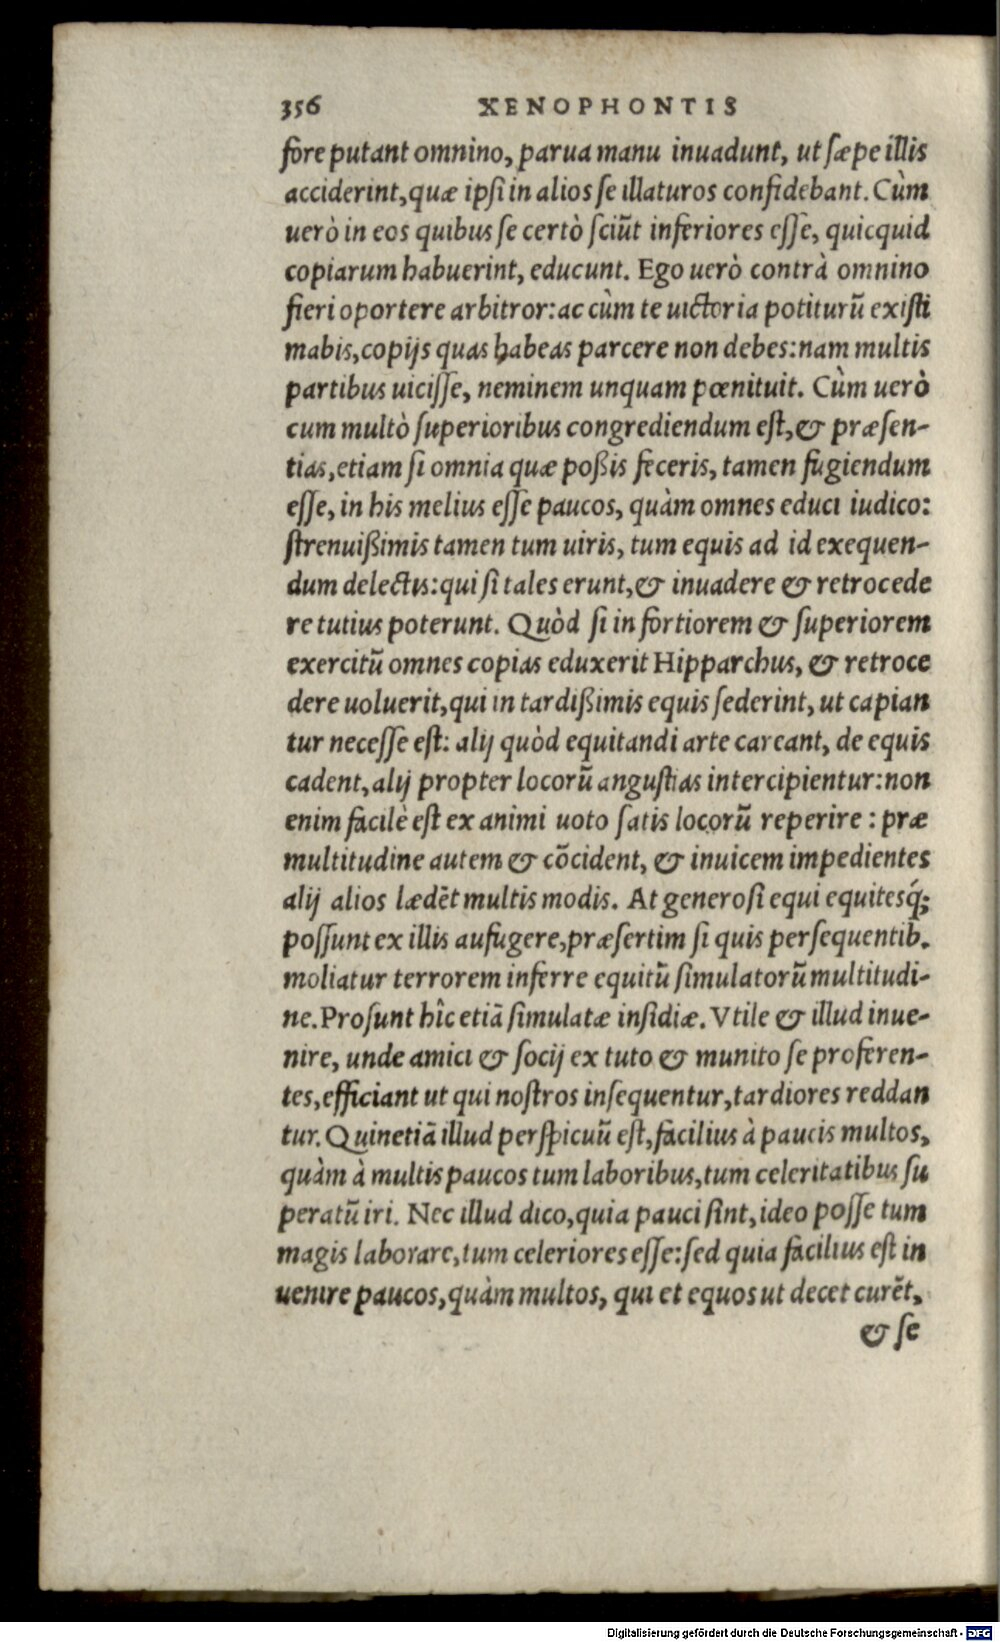 356 XENOPHONTIS
fore putant omnino, parua manu inuadunt, ut sæpe illis
acciderint, quæ ipsi in alios se illaturos confidebant. Cùm
uerò in eos quibus se certò sciũt inferiores esse, quicquid
copiarum habuerint, educunt. Ego uerò contrà omnino
fieri oportere arbitror: ac cùm te uictoria potiturũ existi
mabis, copijs quas habeas parcere non debes: nam multis
partibus uicisse, neminem unquam pœnituit. Cùm uerò
cum multò superioribus congrediendum est, & præsen-
tias, etiam si omnia quæ poßis feceris, tamen fugiendum
esse, in his melius esse paucos, quàm omnes educi iudico:
strenuißimis tamen tum uiris, tum equis ad id exequen-
dum delectis: qui si tales erunt, & inuadere & retrocede
re tutius poterunt. Quòd si in fortiorem & superiorem
exercitũ omnes copias eduxerit Hipparchus, & retroce
dere uoluerit, qui in tardißimis equis sederint, ut capian
tur necesse est: alij quòd equitandi arte careant, de equis
cadent, alij propter locorũ angustias intercipientur: non
enim facilè est ex animi uoto satis locorũ reperire : præ
multitudine autem & cõcident, & inuicem impedientes
alij alios lædẽt multis modis. At generosi equi equitesq́;
possunt ex illis aufugere, præsertim si quis persequentib.
moliatur terrorem inferre equitũ simulatorũ multitudi-
ne. Prosunt hîc etiã simulatæ insidiæ. Vtile & illud inue-
nire, unde amici & socij ex tuto & munito se proferen-
tes, efficiant ut qui nostros insequentur, tardiores reddan
tur. Quinetiã illud perspicuũ est, facilius à paucis multos,
quàm à multis paucos tum laboribus, tum celeritatibus su
peratũ iri. Nec illud dico, quia pauci sint, ideo posse tum
magis laborare, tum celeriores esse: sed quia facilius est in
uenire paucos, quàm multos, qui et equos ut decet curẽt,
& se
Digitalisierung gefördert durch die Deutsche Forschungsgemeinschaft - DFG